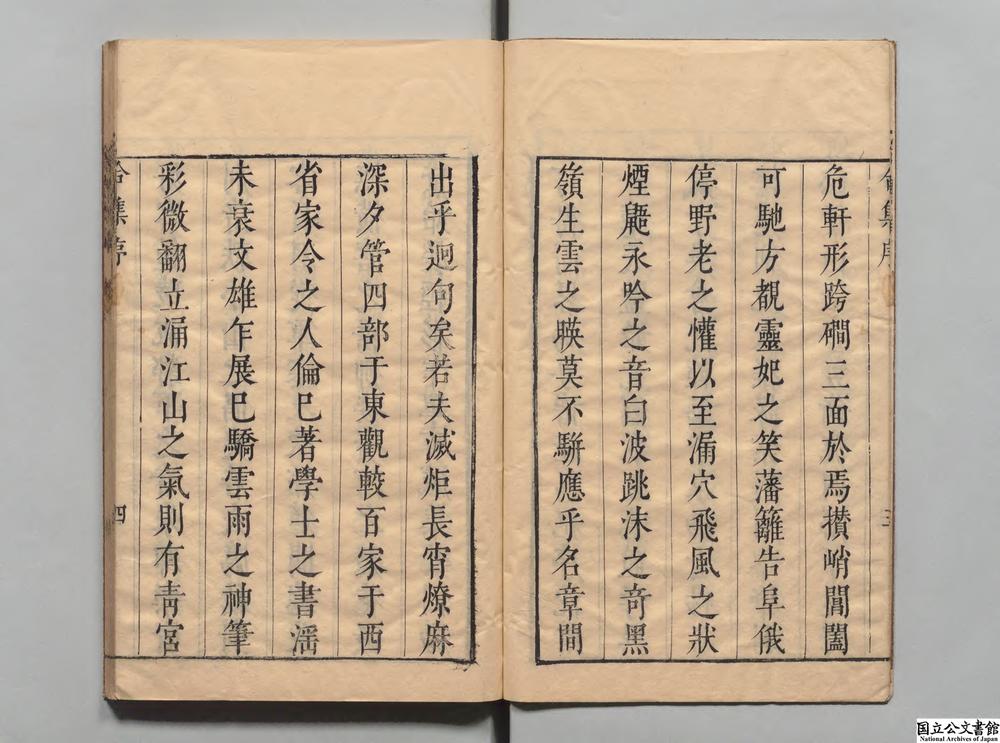 危軒形跨磵三面於焉攢峭閶闔
可馳方覩靈妃之笑藩籬告阜俄
停野老之懽以至漏穴飛風之狀
煙颺永吟之音白波跳沫之竒黑
嶺生雲之暎莫不駢應乎名章間
出乎迥句矣若夫滅炬長宵燎麻
深夕管四部于東觀較百家于西
省家令之人倫巳著學士之書滛
未衰文雄乍展巳驕雲雨之神筆
彩微翻立涌江山之氣則有青宮
合集序
三
合集序
四
国立公文書館
National Archives of Japan